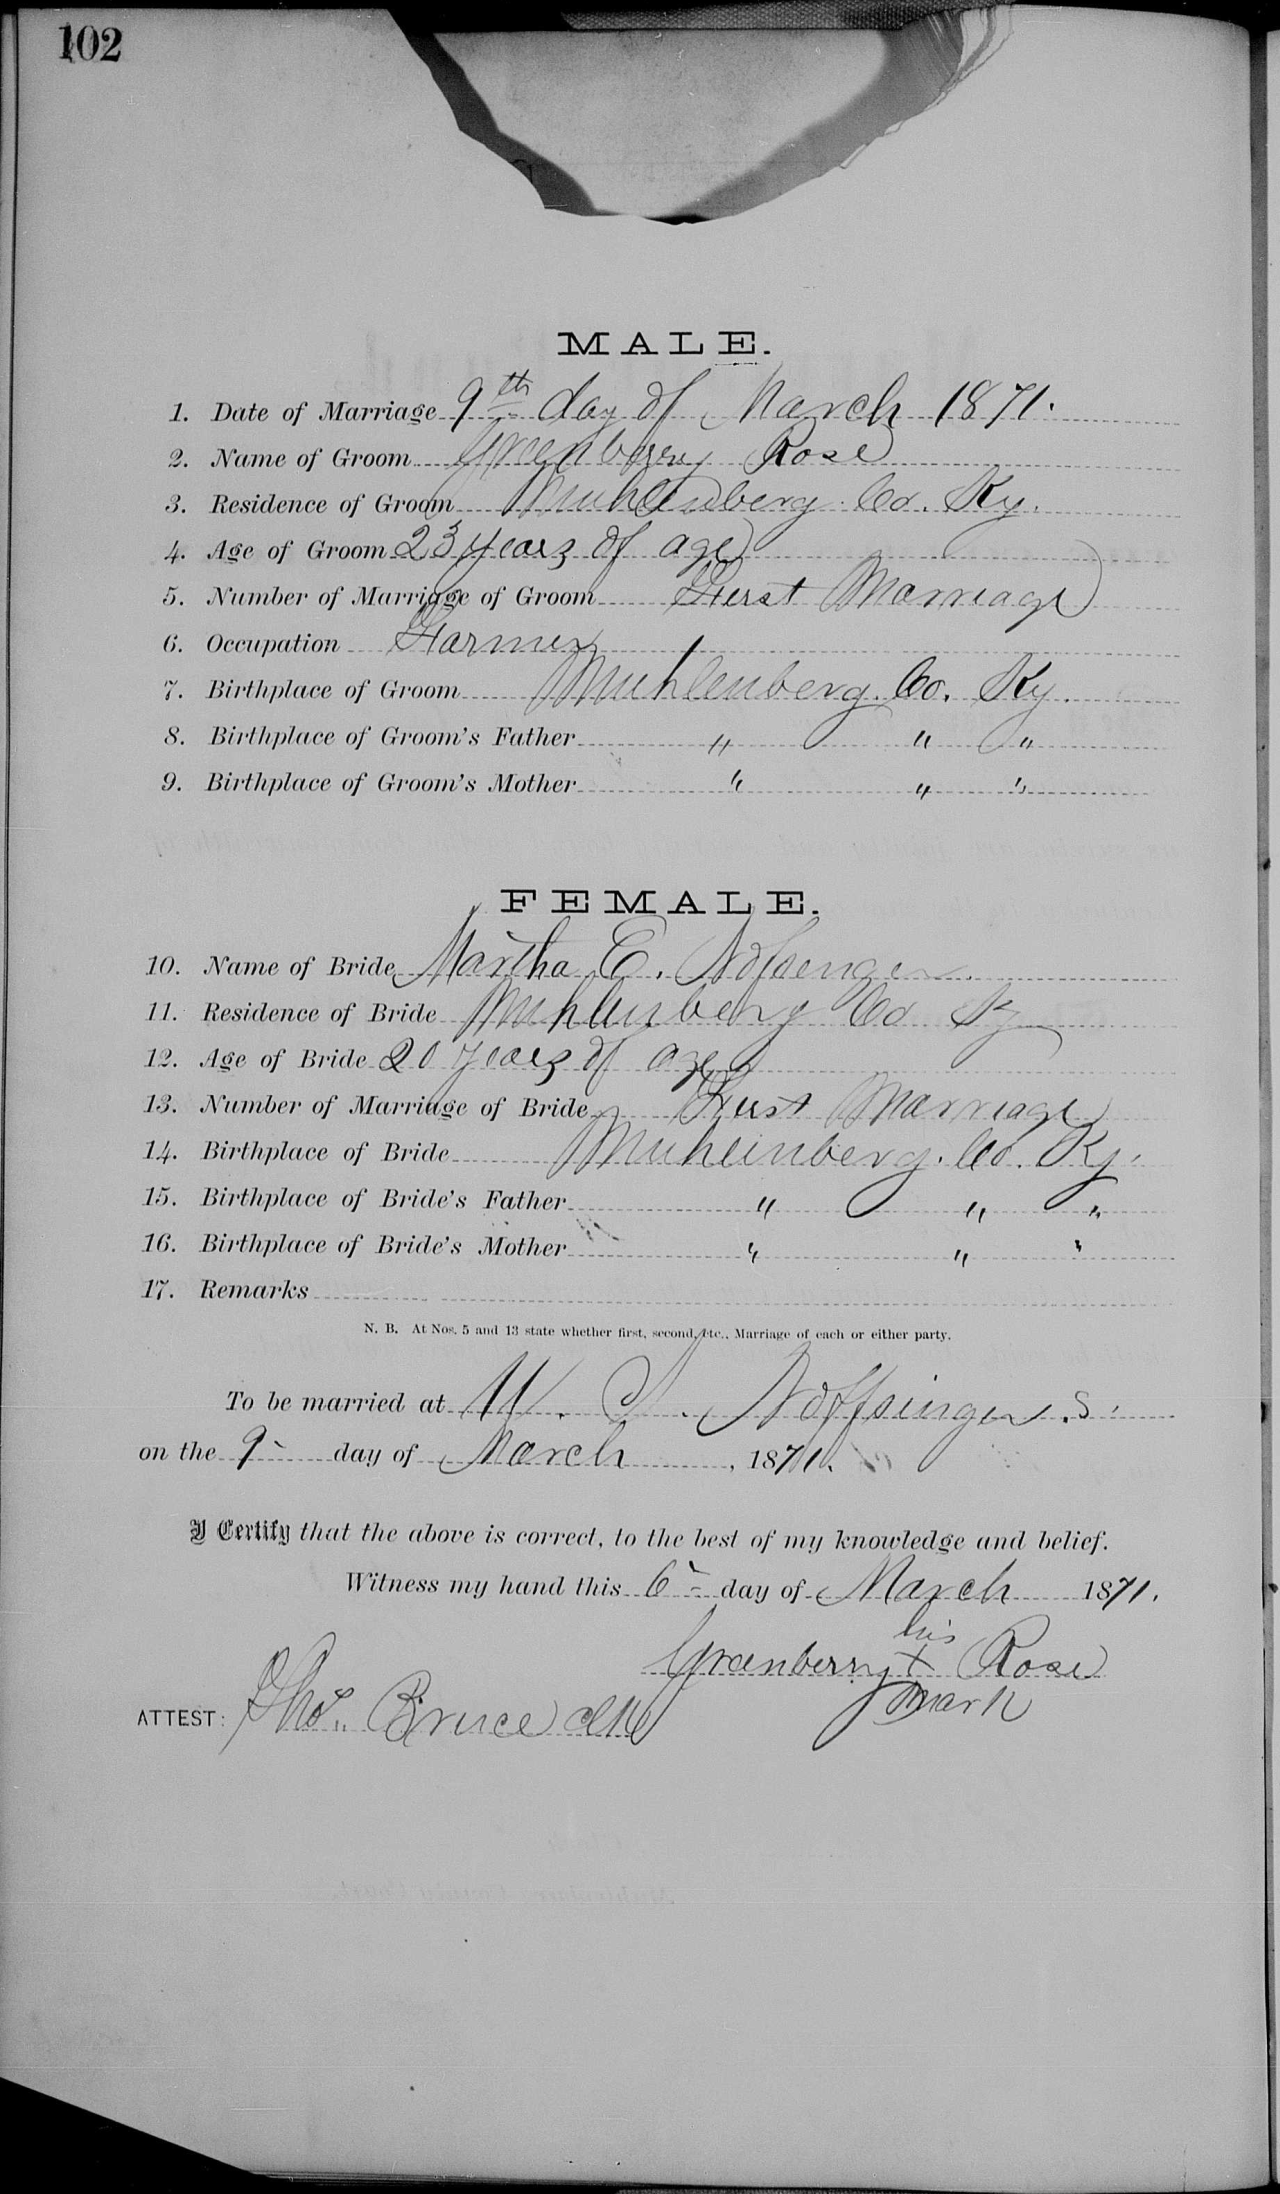 102
MALE.
1. Date of Marriage 9th day of March 1871.
2. Name of Groom Greenberry Rose
3. Residence of Groom Muhlenberg Co. Ky.
4. Age of Groom 23 years of age
5. Number of Marriage of Groom First Marriage
6. Occupation Farmer
7. Birthplace of Groom Muhlenberg Co. Ky.
8. Birthplace of Groom's Father " " "
9. Birthplace of Groom's Mother " " "
FEMALE.
10. Name of Bride Martha E. Nofsenger.
11. Residence of Bride Muhlenberg Co Ky
12. Age of Bride 20 years of age
13. Number of Marriage of Bride First Marriage
14. Birthplace of Bride Muhlenberg. Co. Ky.
15. Birthplace of Bride's Father " " "
16. Birthplace of Bride's Mother " " "
17. Remarks
N. B. At Nos. 5 and 13 state whether first, second, etc., Marriage of each or either party.
To be married at Noffsinger.s.
on the 9 day of March, 1871.
I Certify that the above is correct, to the best of my knowledge and belief.
Witness my hand this 6 day of March 1871.
his
Greenberry X Rose
mark
ATTEST: Thos. Bruce clk